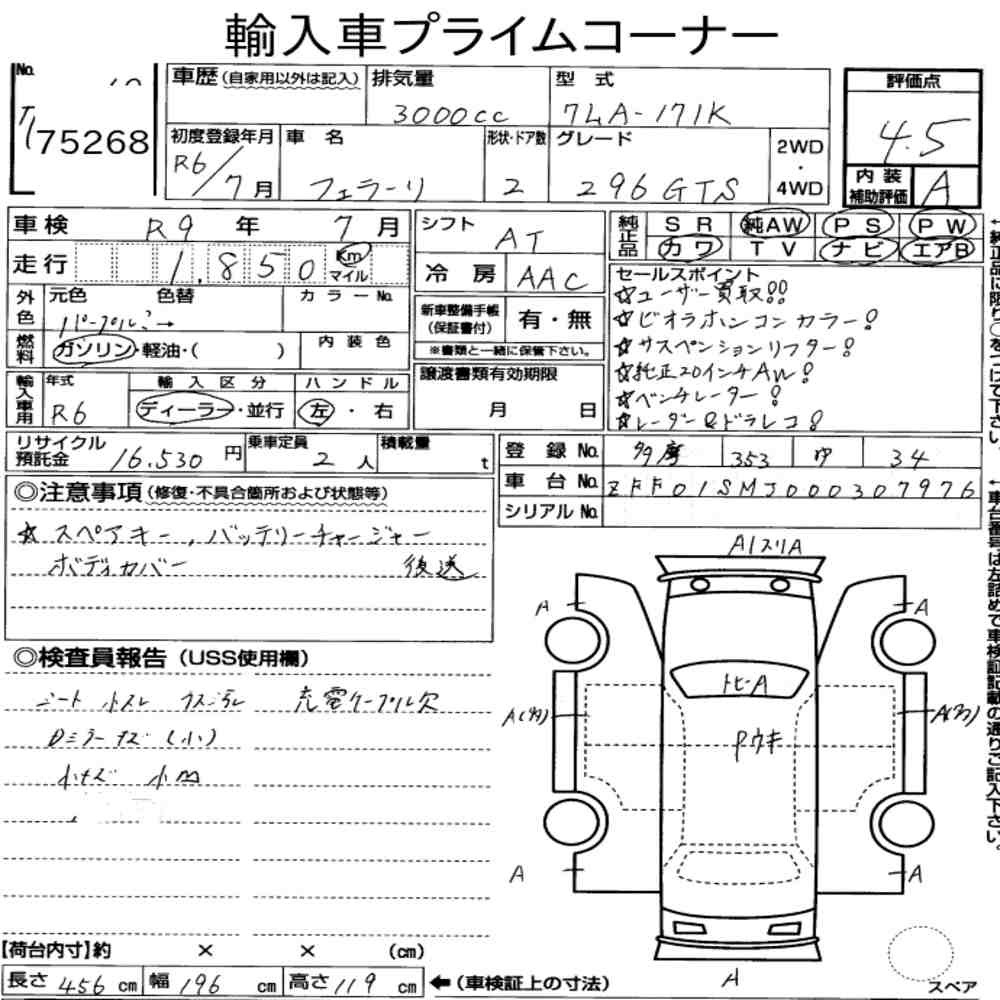 輸入車プライムコーナー
No.
75268
車歴(自家用以外は記入) 排気量 3000cc 型式 7LA-171K
初度登録年月 R6/7月 車名 フェラーリ 形状・ドア数 2 グレード 296GTS 2WD・4WD
評価点 4.5
内装補助評価 A
車検 R9年 7月
走行 1,850 Km マイル
シフト AT
冷房 AAC
純正品 SR 純AW PS PW
カワ TV ナビ エアB
外色 元色 パープルミ→ 色替 カラーNo.
燃料 ガソリン・軽油・( ) 内装色
輸入車用 年式 R6 輸入区分 ディーラー・並行 ハンドル 左・右
新車整備手帳(保証書付) 有・無
※書類と一緒に保管下さい。
譲渡書類有効期限 月 日
セールスポイント
☆ユーザー買取!!
☆ビオラホンコンカラー!
☆サスペンションリフター!
☆純正20インチAW!
☆ベンチレーター!
☆レーダー&ドラレコ!
リサイクル預託金 16.530円 乗車定員 2人 積載量 t
登録No. 多摩 353 ゆ 34
車台No. ZFF01SMJ000307976
シリアルNo.
◎注意事項(修復・不具合箇所および状態等)
☆スペアキー、バッテリーチャージャー
ボディカバー 後送
◎検査員報告(USS使用欄)
シート 小スレ ウス汚レ 充電ケーブル欠
Dミラーキズ(小)
小キズ 小凹
A1スリA
A A
トビ-A
A(多) A(多)
Pウキ
A A
A
スペア
【荷台内寸】約 × × (cm)
長さ 456 cm 幅 196 cm 高さ 119 cm ←(車検証上の寸法)
←純正品に限り○をつけて下さい。
←車台番号は左詰めで車検証記載の通りご記入下さい。